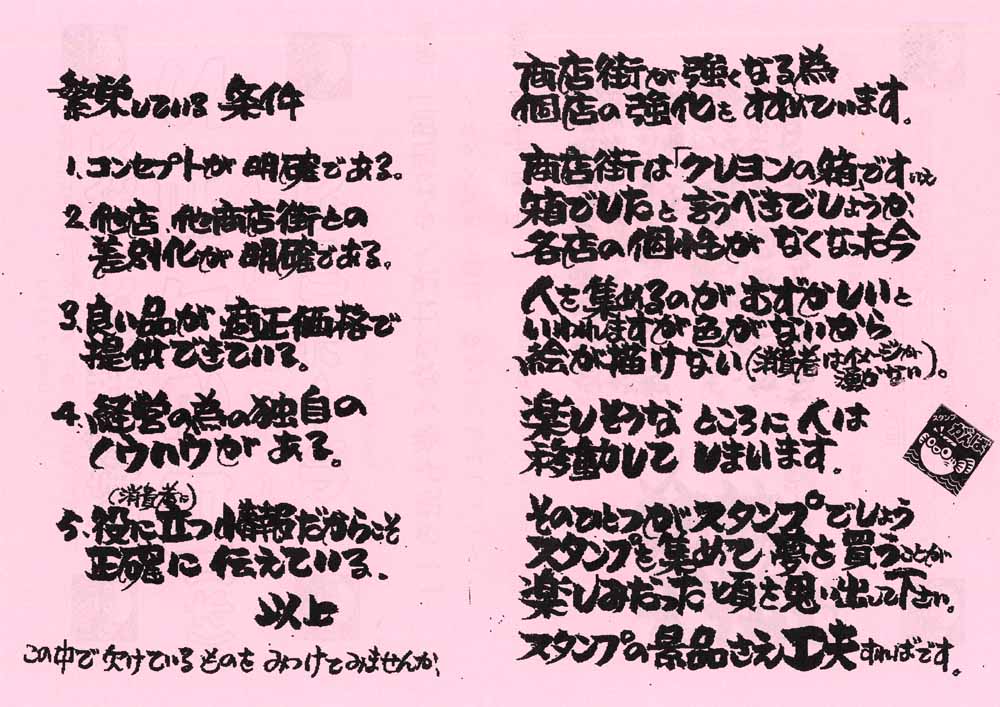 繁栄している 条件
1、コンセプトが 明確である。
2、他店、他商店街との
差別化が 明確である。
3、良い品が 適正価格で
提供できている。
4、経営の為の独自の
ノウハウが ある。
(消費者に)
5、役に立つ情報だからこそ
正確に 伝えている。
以上
この中で欠けているものを みつけてみませんか。
商店街が 強くなる為
個店の 強化を すすめています。
商店街は「クレヨンの箱」です いえ
箱でしたと 言うべきでしょうか、
各店の 個性が なくなった今
人を集めるのが むずかしいと
いわれますが 色がないから
絵が描けない(消費者はイメージが
湧かない)。
楽しそうな ところに 人は
移動して しまいます。
スタンプ
がんばー
そのひとつがスタンプでしょう
スタンプを集めて 夢を 買うことが
楽しみだった 頃を思い出して下さい。
スタンプの景品さえ 工夫すればです。